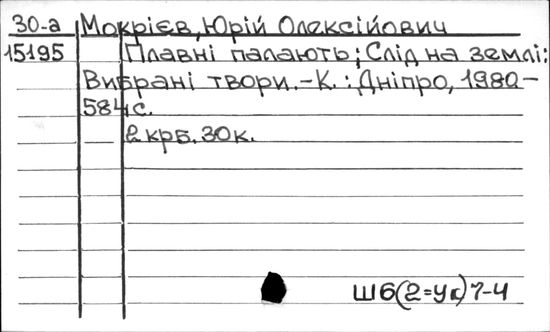 30-а Мокрієв, Юрій Олексійович
15195 Плавні палають; Слід на землі:
Вибрані твори.-К.: Дніпро, 1980-
584с.
2 крб. 30к.
Ш6(2=Ук)7-4